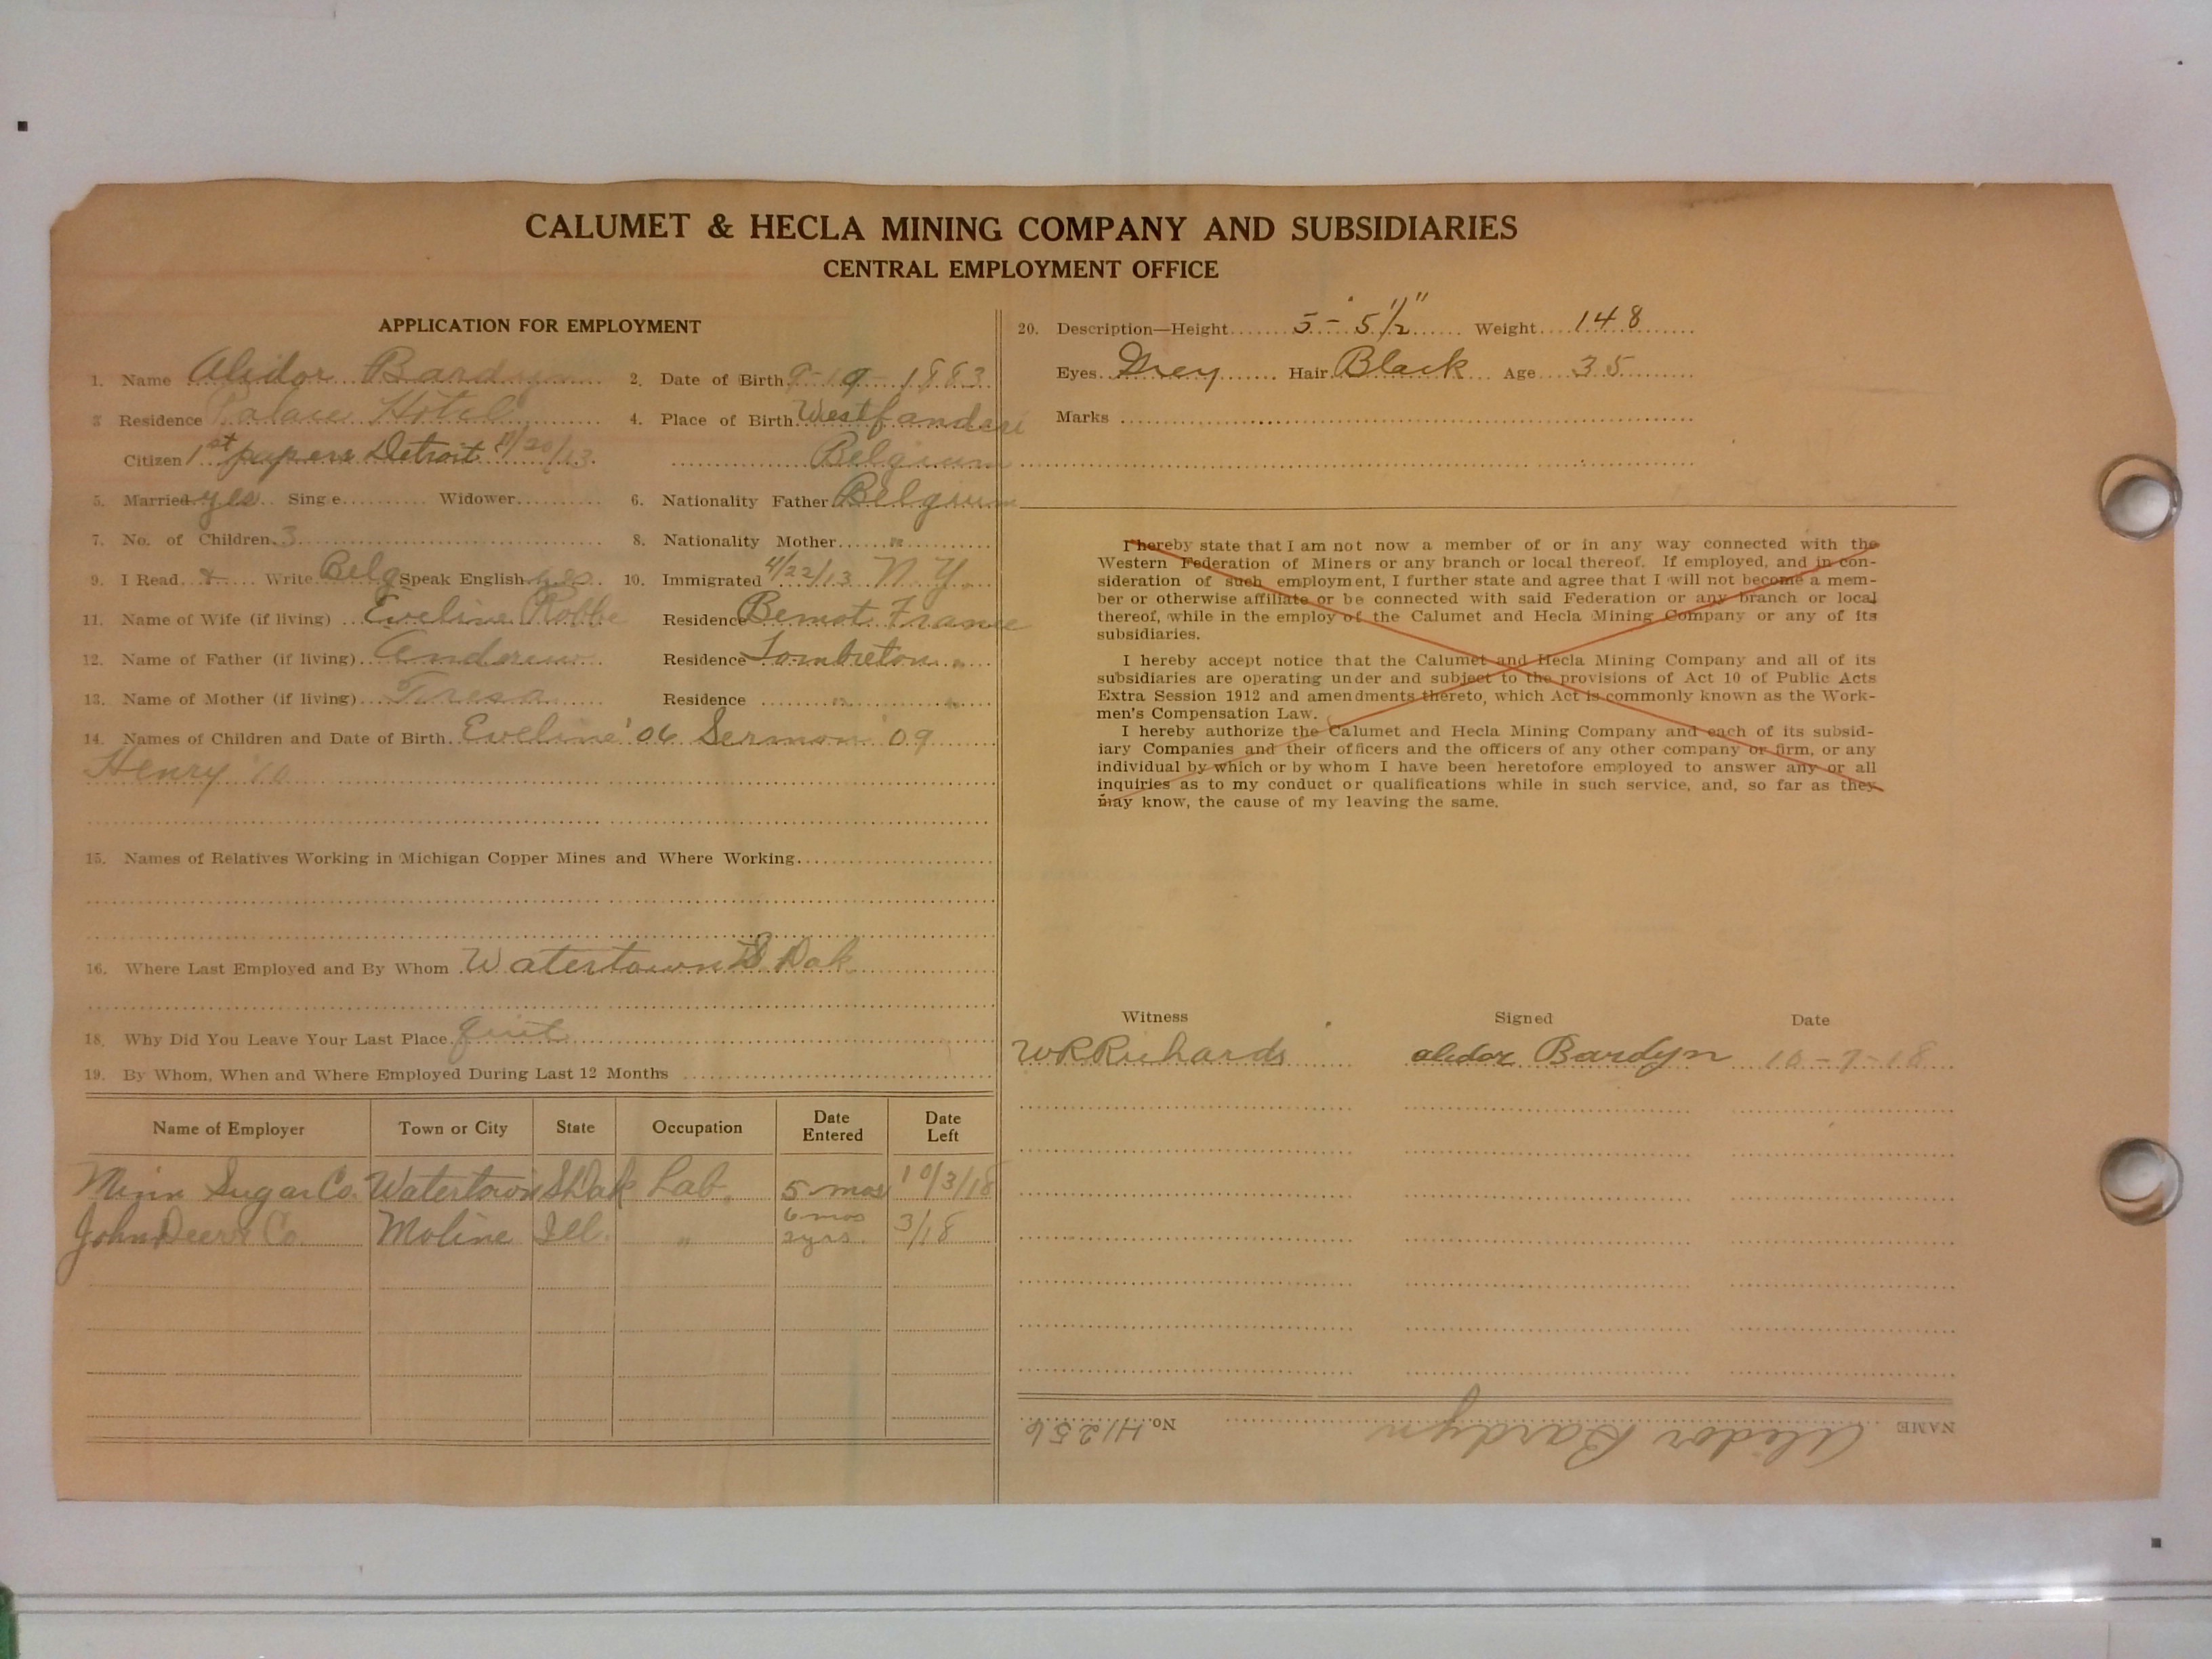 CALUMET & HECLA MINING COMPANY AND SUBSIDIARIES
CENTRAL EMPLOYMENT OFFICE
APPLICATION FOR EMPLOYMENT
1. Name Alidor Bardyn 2. Date of Birth 9-19-1883
3 Residence Palace Hotel 4. Place of Birth Westfanderi
Citizen 1st papers Detroit 11/20/13 Belgium
5. Married yes Sing e Widower 6. Nationality Father Belgium
7. No. of Children 3 8. Nationality Mother "
9. I Read & Write Belg Speak English yes 10. Immigrated 4/22/13 N.Y.
11. Name of Wife (if living) Eveline Robbe Residence France
12. Name of Father (if living) Residence
13. Name of Mother (if living) Tresa Residence " "
14. Names of Children and Date of Birth. Eveline '06 Sermon '09
Henry '10
15. Names of Relatives Working in Michigan Copper Mines and Where Working
16. Where Last Employed and By Whom Watertown S Dak
18. Why Did You Leave Your Last Place quit
19. By Whom, When and Where Employed During Last 12 Months
Name of Employer Town or City State Occupation Date Entered Date Left
Minn Sugar Co. Watertown SDak Lab. 5 mos 10/3/18
John Deere Co. Moline Ill. " 6 mos 2 yrs. 3/18
20. Description—Height 5-5 1/2" Weight 148
Eyes Grey Hair Black Age 35
Marks
I hereby state that I am not now a member of or in any way connected with the
Western Federation of Miners or any branch or local thereof. If employed, and in con-
sideration of such employment, I further state and agree that I will not become a mem-
ber or otherwise affiliate or be connected with said Federation or any branch or local
thereof, while in the employ of the Calumet and Hecla Mining Company or any of its
subsidiaries.
I hereby accept notice that the Calumet and Hecla Mining Company and all of its
subsidiaries are operating under and subject to the provisions of Act 10 of Public Acts
Extra Session 1912 and amendments thereto, which Act is commonly known as the Work-
men's Compensation Law.
I hereby authorize the Calumet and Hecla Mining Company and each of its subsid-
iary Companies and their officers and the officers of any other company or firm, or any
individual by which or by whom I have been heretofore employed to answer any or all
inquiries as to my conduct or qualifications while in such service, and, so far as they
may know, the cause of my leaving the same.
Witness Signed Date
WRRichards alidor Bardyn 10-7-18
NAME Alidor Bardyn No. H1256